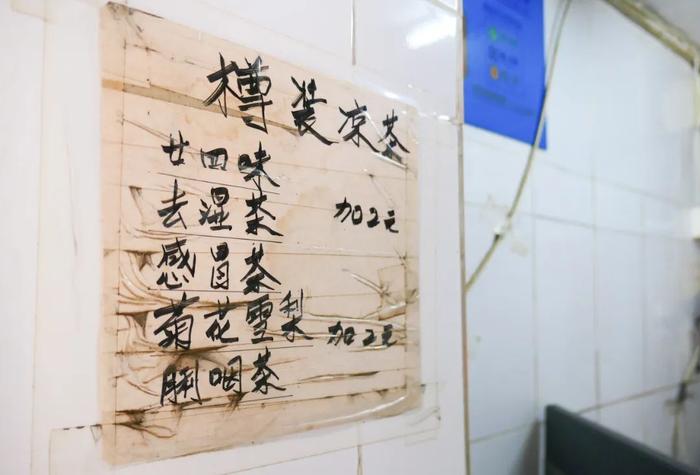 樽装凉茶
廿四味
去湿茶 加2元
感冒茶
菊花雪梨 加2元
脷咽茶